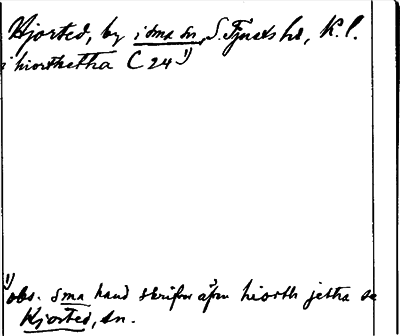 Hjorted, by i sma sn, S. Tjusts hd, K. l.
i hiorthetha C 24 1)
1) obs. sma hand skrifver även hiorth jetha se
Hjorted, sn.